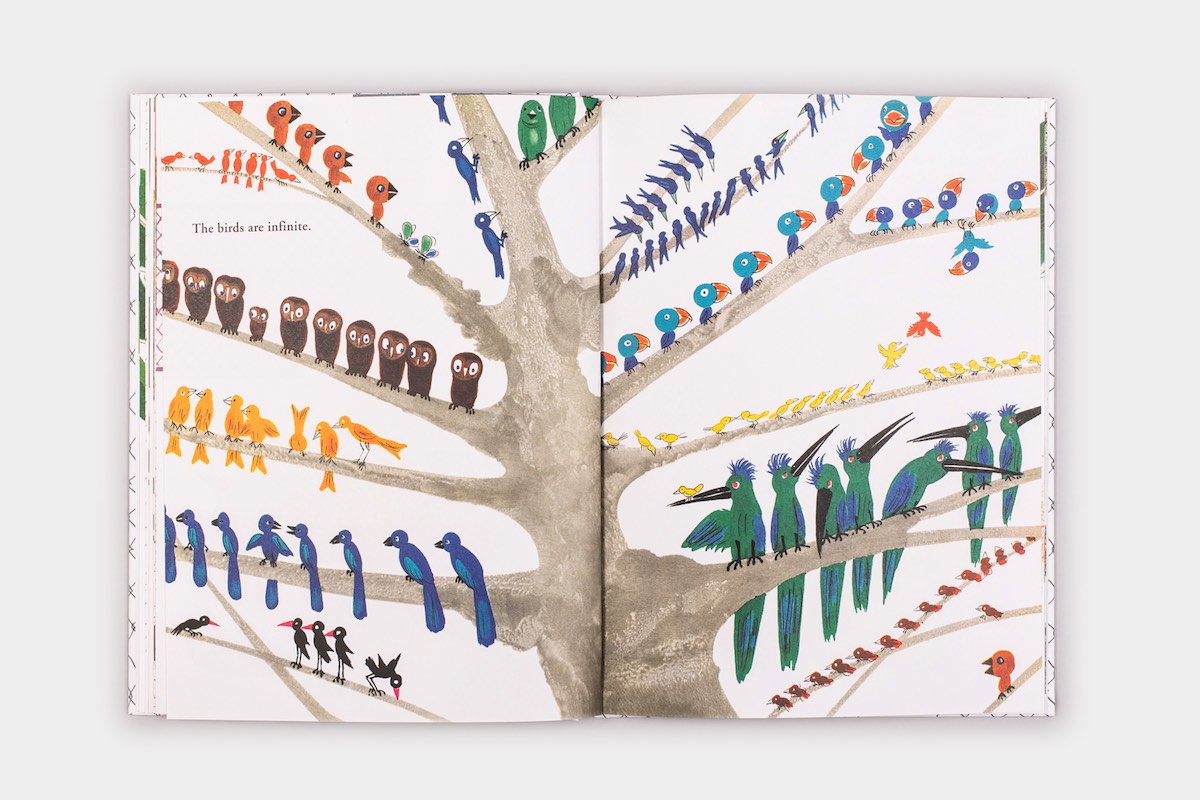 The birds are infinite.